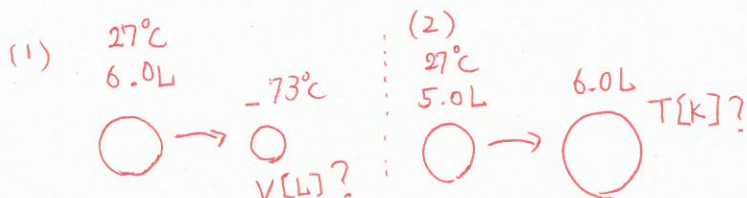 (1)
27°C
6.0L
-73°C
V[L]?
(2)
27°C
5.0L
6.0L
T[K]?